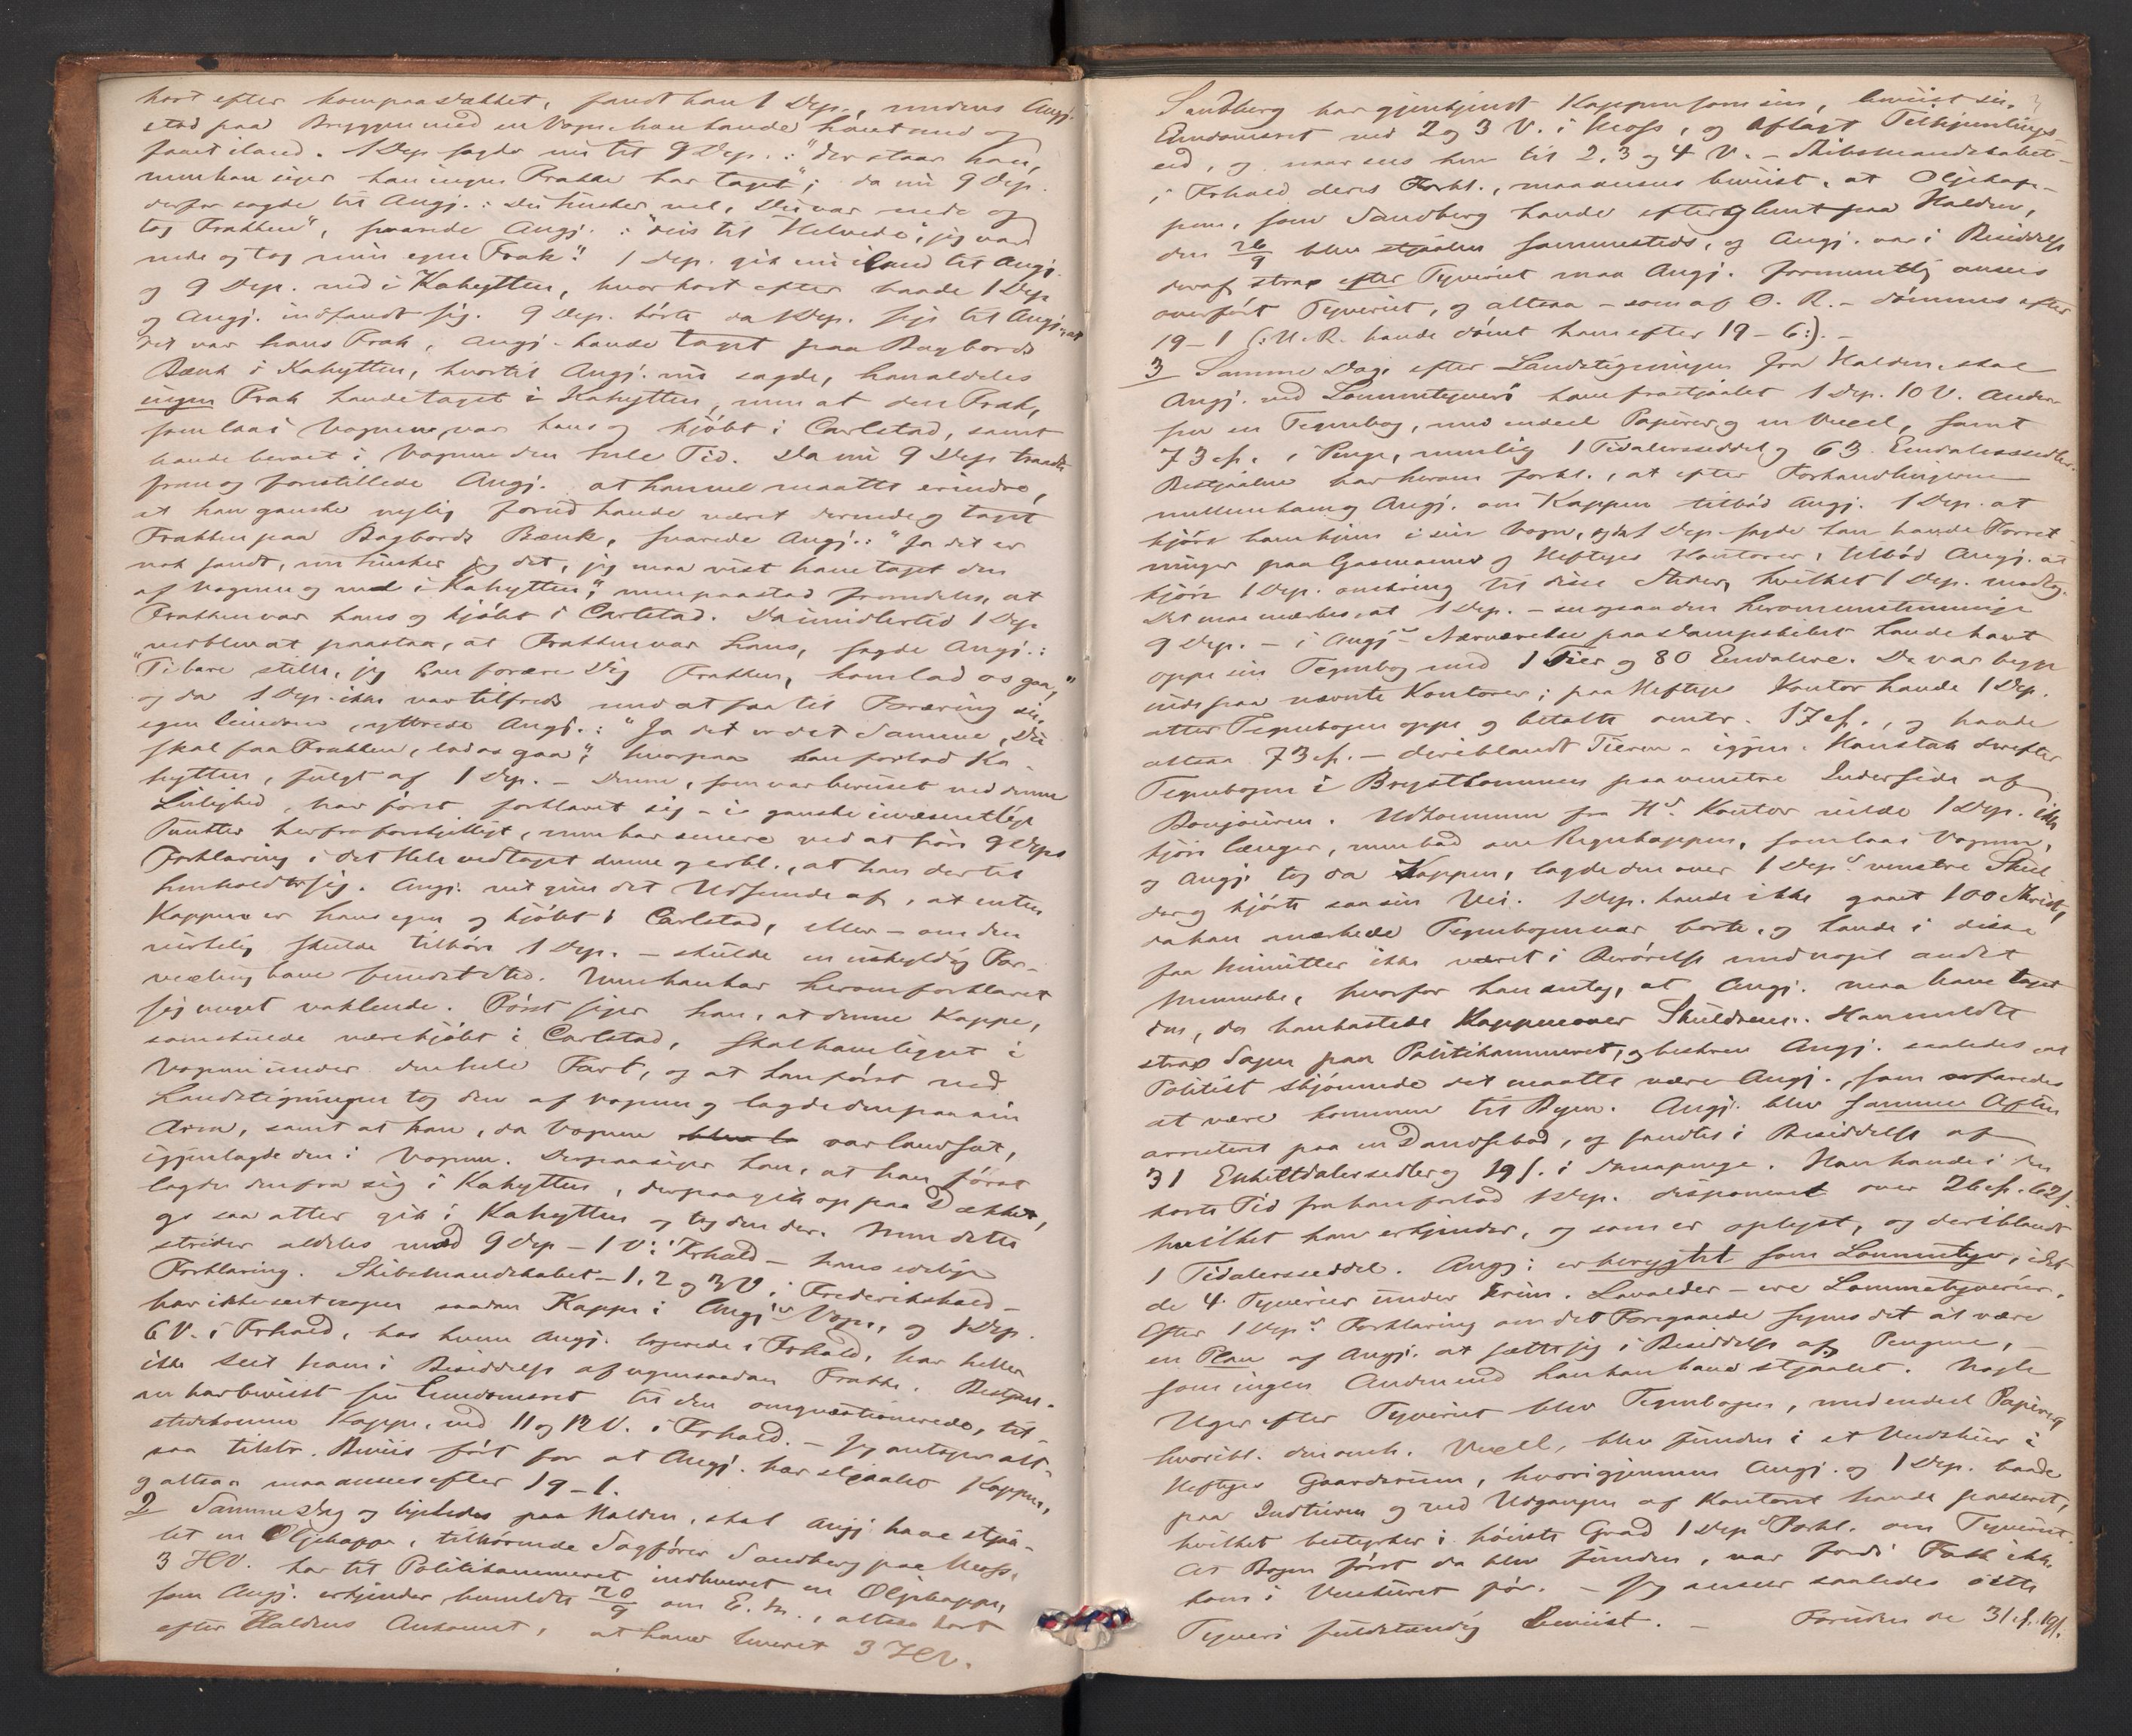 kort efter kom paa Dækket, fandt han 1 Dep., medens Angj.
stod paa Bryggen med en Vogn han havde havt med og
faaet iland. 1 Dep sagde nu til 9 Dep.: "Der staar han,
men han siger han ingen Frakke har taget"; da nu 9 Dep.
derfor sagde til Angj.: Du husker vel, Du var nede og
tog Frakken", svarede Angj.: "Reis til Helvede", jeg var
nede og tog min egen Frak." 1 Dep. gik nu iland til Angj.
og 9 Dep. ned i Kahytten, hvor kort efter baade 1 Dep
og Angj. indfandt sig. 9 Dep. hørte da 1 Dep. sige til Angj., at
det var hans Frak, Angj. havde taget paa Bagbords
Bænk i Kahytten, hvortil Angj. nu sagde, han aldeles
ingen Frak havde taget i Kahytten, men at den Frak,
som laa i Vognen, var hans og kjøbt i Carlstad, samt
havde beroet i Vognen den hele Tid. Da nu 9 Dep. traadte
frem og forestillede Angj. at han vel maatte erindre,
at han ganske nylig forud havde været dernede og taget
Frakken paa Bagbords Bænk, svarede Angj.: "Ja det er
nok sandt, nu husker jeg det, jeg maa vist have taget den
af Vognen og ned i Kahytten", men paastod fremdeles, at
Frakken var hans og kjøbt i Carlstad. Da imidlertid 1 Dep
vedblev at paastaa, at Frakken var hans, sagde Angj.:
"Ti bare stille, jeg kan forære Dig Frakken, kom lad os gaa,"
og da 1 Dep. ikke var tilfreds med at faa til Foræring sin
egen Eiendom, yttrede Angj.: "Ja det er det Samme, Du
skal faa Frakken, lad os gaa", hvorpaa han forlod Ka-
hytten, fulgt af 1 Dep. – Denne, som var beruset ved denne
Leilighed, har først forklaret sig – i ganske uvæsentlige
Punkter herfra forskjelligt, men har senere ved at høre 9 Deps
Forklaring i det Hele vedtaget denne og erkl., at han dertil
henholdt sig. Angj. vil give det Udseende af, at enten
Kappen er hans egen og kjøbt i Carlstad, eller – om den
virkelig skulde tilhøre 1 Dep. – skulde en uskyldig For-
vexling have fundet Sted. Men han har herom forklaret
sig meget vaklende. Først siger han, at denne Kappe,
som skulde være kjøbt i Carlstad, skal have ligget i
Vognen under den hele Fart, og at han først ved
Landstigningen tog den af Vognen og lagde den paa sin
Arm, samt at han, da Vognen var landsat,
igjen lagde den i Vognen. Derpaa siger han, at han først
lagde den fra sig i Kahytten, derpaa gik op paa Dækket,
og saa atter gik i Kahytten og tog den der. Men dette
strider aldeles mod 9 Dep – 1 V. i Frhald – hans edelige
Forklaring. Skibsmandskabet – 1, 2 og 3 V. i Frederikshald –
har ikke seet nogen saadan Kappe i Angj's Vogn, og 1 Dep.
6 V. i Frhald, hos hvem Angj. logerede i Frhald, har heller
ikke seet ham i Besiddelse af nogen saadan Frakke. Bestjaal-
ne har beviist sin Eiendomsret til den omquæstionerede, til-
stedekomne Kappe, ved 11 og 12 V. i Frhald. – Jeg antager alt-
saa tilstr. Beviis ført for at Angj. har stjaalet Kappen,
og altsaa maa ansees efter 19–1.
2 Samme Dag og ligeledes paa Halden, skal Angj. have stjaa-
let en Oljekappe, tilhørende Sagfører Sandberg paa Moss.
3 HV. har til Politikammeret indleveret en Oljekappe,
som Angj. erkjender henseet 20/9 om E.M., altsaa kort
efter Haldens Ankomst, at have leveret 3 HV.
Sandberg har gjenkjendt Kappen som sin, beviist sin
Eiendomsret ved 2 og 3 V. i Moss, og aflagt Tilhjemlings-
eed, og naar sees hen til 2, 3 og 4 V. – Skibsmandskabet –
i Frhald deres Forkl., maa ansees beviist, at Oljekap-
pen, som Sandberg havde efterglemt paa Halden,
den 20/9 blev stjaalen sammesteds, og Angj. var i Besiddelse
deraf strax efter Tyveriet maa Angj. formentlig ansees
overført Tyveriet, og altsaa – som af O. R. – dømmes efter
19–1 (: U. R. havde dømt ham efter 19–6:). –
3 Samme Dag, efter Landstigningen fra Halden skal
Angj. ved Lommetyveri have frastjaalet 1 Dep. 10 V. Ander-
sen en Tegnebog, med endeel Papirer og en Vexel, samt
73 Sp. i Penge, nemlig 1 Tidalersseddel og 63 Eendalerssedler.
Bestjaalne har herom forkl., at efter Forhandlingerne
mellem ham og Angj. om Kappen tilbød Angj. 1 Dep. at
kjøre ham hjem i sin Vogn, og da 1 Dep. sagde han havde Forret-
ninger paa Gasmanns og Heftyes Kontorer, tilbød Angj. at
kjøre 1 Dep. omkring til disse Steder, hvilket 1 Dep. modtog.
Det maa mærkes, at 1 Dep. – see ogsaa den heromstemmige
9 Dep. – i Angj's Nærværelse paa Dampskibet havde havt
oppe sin Tegnebog med 1 Tier og 80 Eendalere. De var begge
inde paa nævnte Kontorer; paa Heftyes Kontor havde 1 Dep.
atter Tegnebogen oppe og betalte omtr. 17 Sp., og havde
altsaa 73 Sp. – deriblandt Tieren – igjen. Han stak derefter
Tegnebogen i Brystlommen paa venstre Inderside af
Bonjouren. Udkommen fra H's Kontor vilde 1 Dep. ikke
kjøre længer, men bad om Regnkappen, som laa i Vognen,
og Angj. tog da Kappen, lagde den over 1 Dep's venstre Skul-
der og kjørte saa sin Vei. 1 Dep. havde ikke gaaet 100 Skridt,
da han mærkede Tegnebogen var borte, og havde i disse
faa Minutter ikke været i Berørelse med noget andet
Menneske, hvorfor han antog, at Angj. maa have taget
den, da han kastede Kappen over Skuldrene. Han meldte
strax Sagen paa Politikammeret, og beskrev Angj. saaledes, at
Politiet skjønnede det maatte være Angj., som erfaredes
at være kommen til Byen. Angj. blev samme Aften
arresteret paa en Dandsebod, og fandtes i Besiddelse af
31 Enkeltdalersedler og 19 s. i Smaapenge. Han havde i den
korte Tid fra han forlod 1 Dep. disponeret over 26 Sp. 62 s.
hvilket han erkjender, og som er oplyst, og deriblandt
1 Tidalersseddel. Angj. er berygtet som Lommetyv, idet
de 4 Tyverier under Krim. Lovalder – ere Lommetyverier.
Efter 1 Dep's Forklaring om det Foregaaende synes det at være
en Plan af Angj. at sætte sig i Besiddelse af Pengene, –
som ingen Anden end han kan have stjaalet. Nogle
Uger efter Tyveriet blev Tegnebogen, med endeel Papirer,
hvoribl. den omh. Vexel, blev funden i et Vedskuur i
Heftyes Gaardsrum, hvorigjennem Angj. og 1 Dep. baade
paa Indturen og ved Udgangen af Kontoret havde passeret,
hvilket bestyrker i høieste Grad 1 Dep's Forkl. om Tyveriet.
At Bogen først da blev funden, var fordi Folk ikke
kom i Vedskuret før. – Jeg anseer saaledes dette
Tyveri fuldstændig beviist. – Foruden de 31 Sp. 19 s.